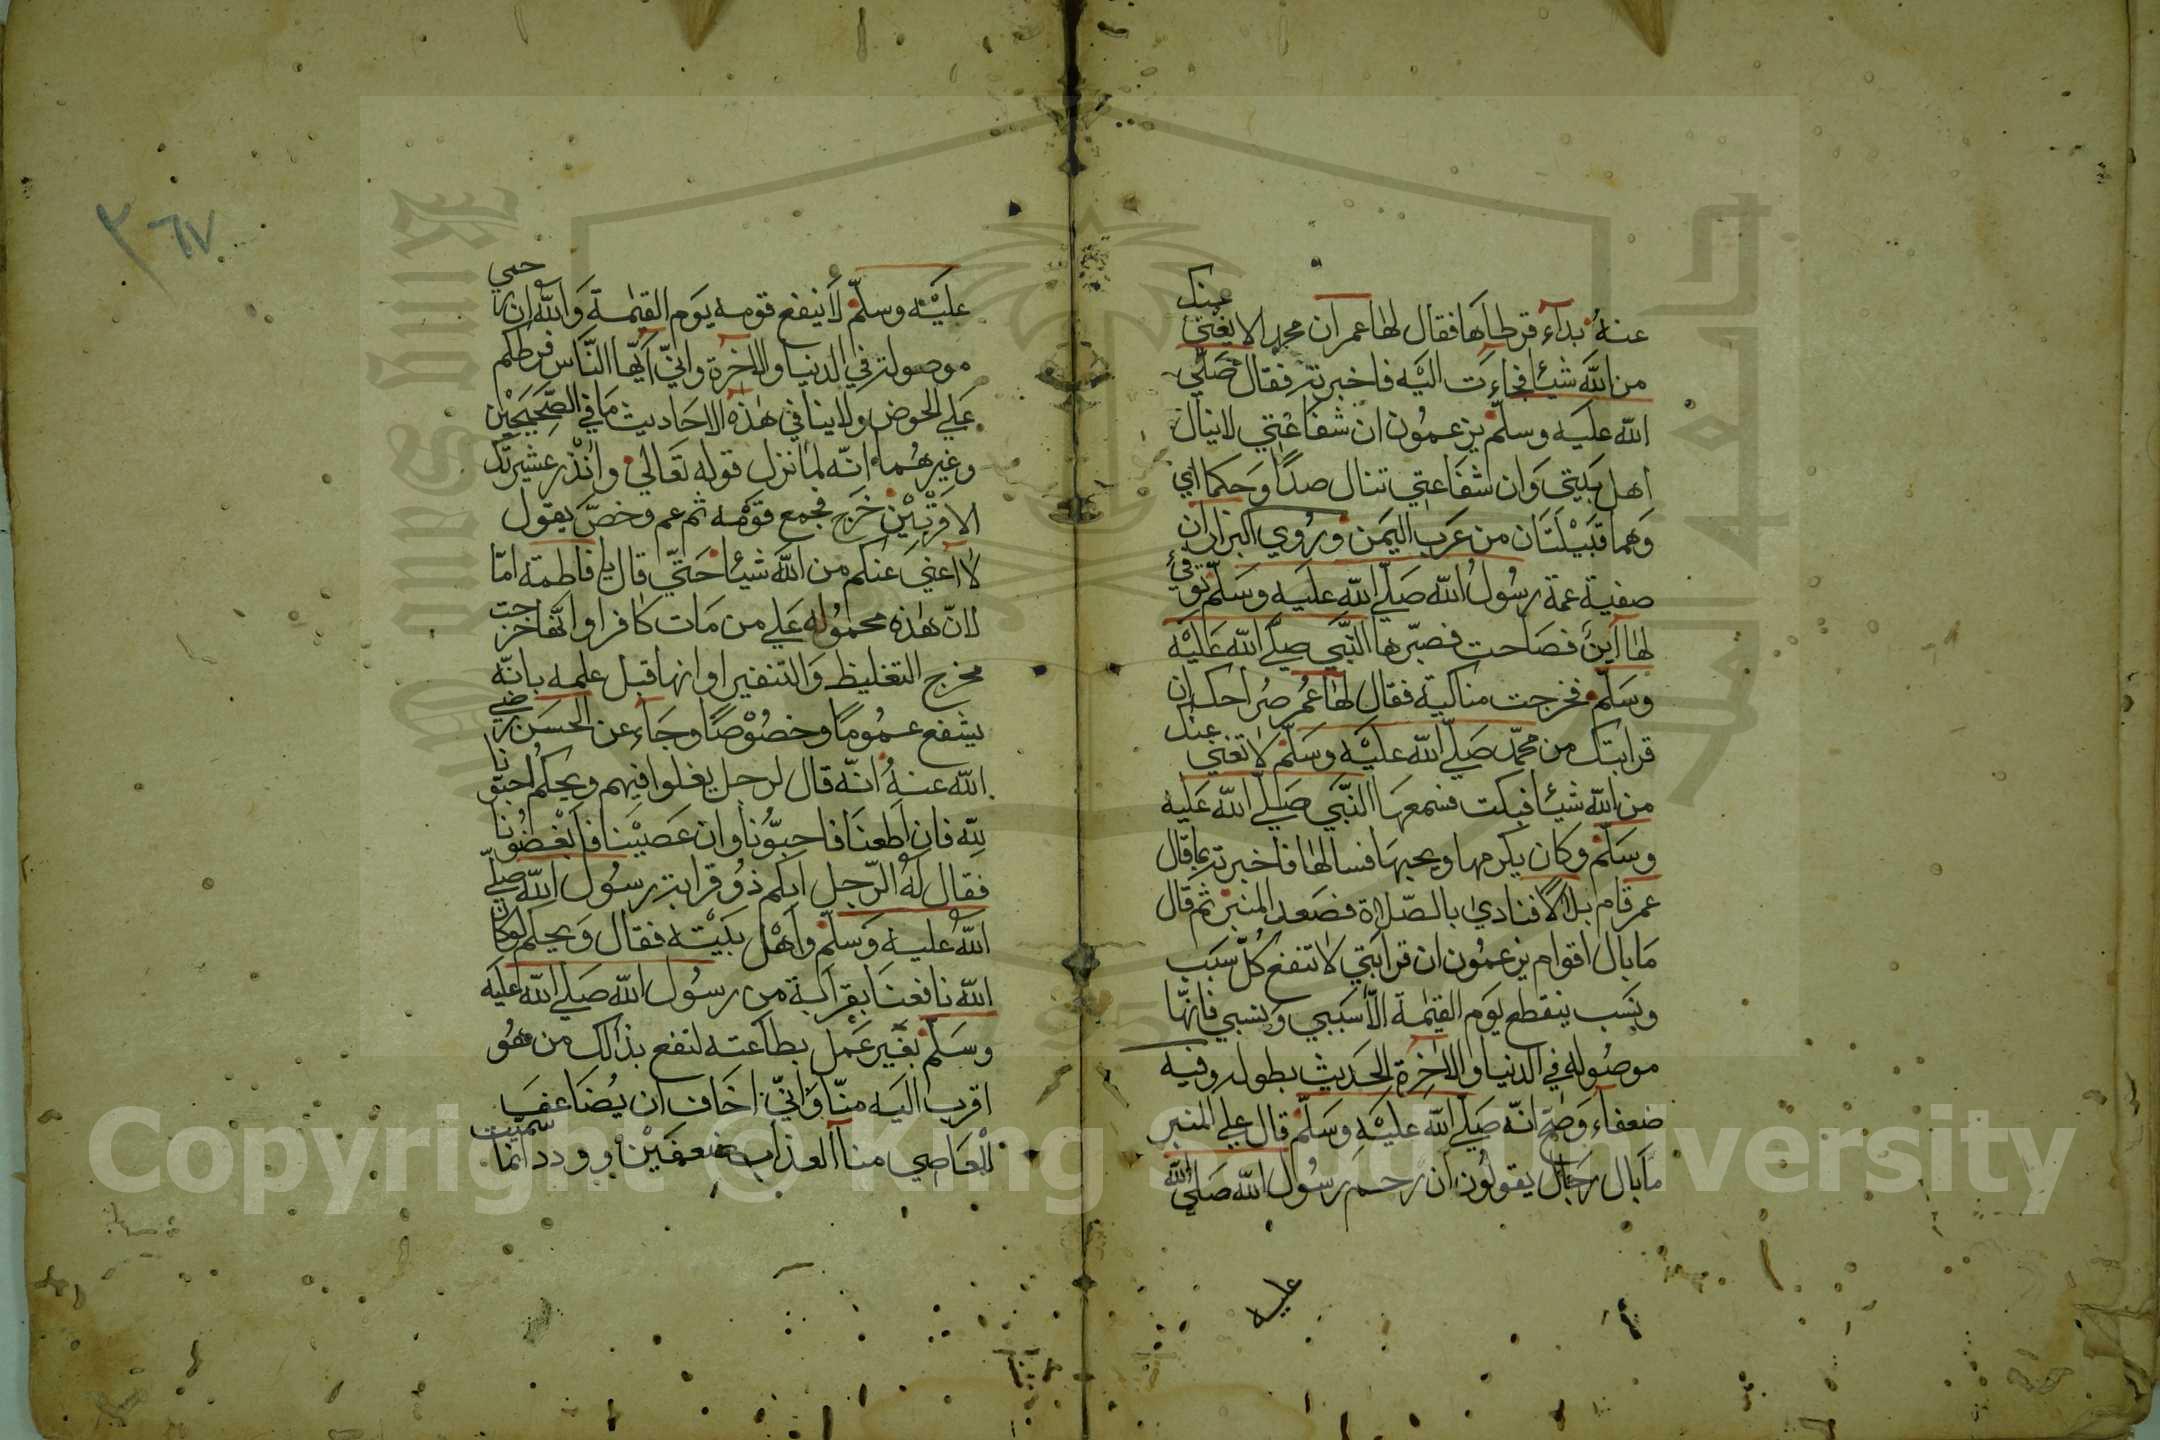 عنه بدا قرطاها فقال لها عمر ان محمدا لا يغني عنك
من الله شيئا فجاءت اليه فاخبرته فقال صلي
الله عليه وسلم يزعمون ان شفاعتي لا تنال
اهل بيتي وان شفاعتي تنال صداء وحكما اي
وهما قبيلتان من عرب اليمن وروي البزار ان
صفية عمة رسول الله صلي الله عليه وسلم توفي
لها ابن فصاحت فصبرها النبي صلي الله عليه
وسلم فخرجت ساكتة فقال لها عمر صراخك ان
قرابتك من محمد صلي الله عليه وسلم لا تغني عنك
من الله شيئا فبكت فسمعها النبي صلي الله عليه
وسلم وكان يكرمها ويحبها فسالها فاخبرته بما قال
عمر قام بلالا فنادي بالصلاة فصعد المنبر ثم قال
ما بال اقوام يزعمون ان قرابتي لا تنفع كل سبب
ونسب ينقطع يوم القيمة الا سببي ونسبي فانها
موصوله في الدنيا والاخرة الحديث بطوله وفيه
ضعفاء وصح انه صلي الله عليه وسلم قال علي المنبر
ما بال رجال يقولون ان رحم رسول الله صلي الله
عليه
٣٦٧
عليه وسلم لا ينفع قومه يوم القيمة والله ان رحمي
موصولة في الدنيا والاخرة واني ايها الناس فرطكم
علي الحوض ولا ينافي هذه الاحاديث ما في الصحيحين
وغيرهما انه لما نزل قوله تعالي وانذر عشيرتك
الاقربين خرج فجمع قومه ثم عم وخص يقول
لا اغني عنكم من الله شيئا حتي قال يا فاطمة اما
لان هذه محموله علي من مات كافرا او انها خرجت
مخرج التغليظ والتنفير او انها قبل علمه بانه
يشفع عموما وخصوصا وجاء عن الحسن رضي
الله عنه انه قال لرجل يغلوا فيهم ويحكم احبونا
لله فان اطعنا فاحبونا وان عصينا فابغضونا
فقال له الرجل انكم ذو قرابة رسول الله صلي
الله عليه وسلم واهل بيته فقال ويحكم لو كان
الله نافعنا بقرابة من رسول الله صلي الله عليه
وسلم بغير عمل بطاعته لنفع بذالك من هو
اقرب اليه منا واني اخاف ان يضاعف
للعاصي منا العذاب ضعفين وورد انما سميت
Copyright © King Saud University
King Saud University
جامعة الملك سعود